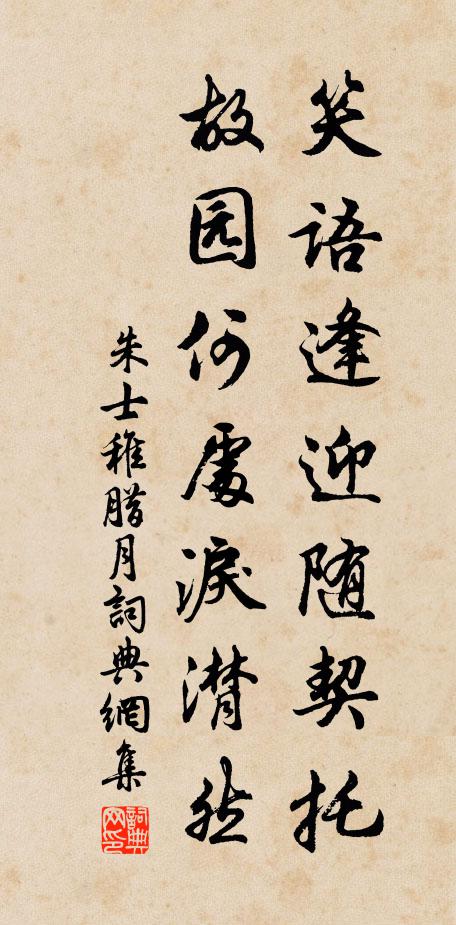 笑語逢迎随契托
故园何處淚潸然
朱士稚腊月詞典網集
詞典网印